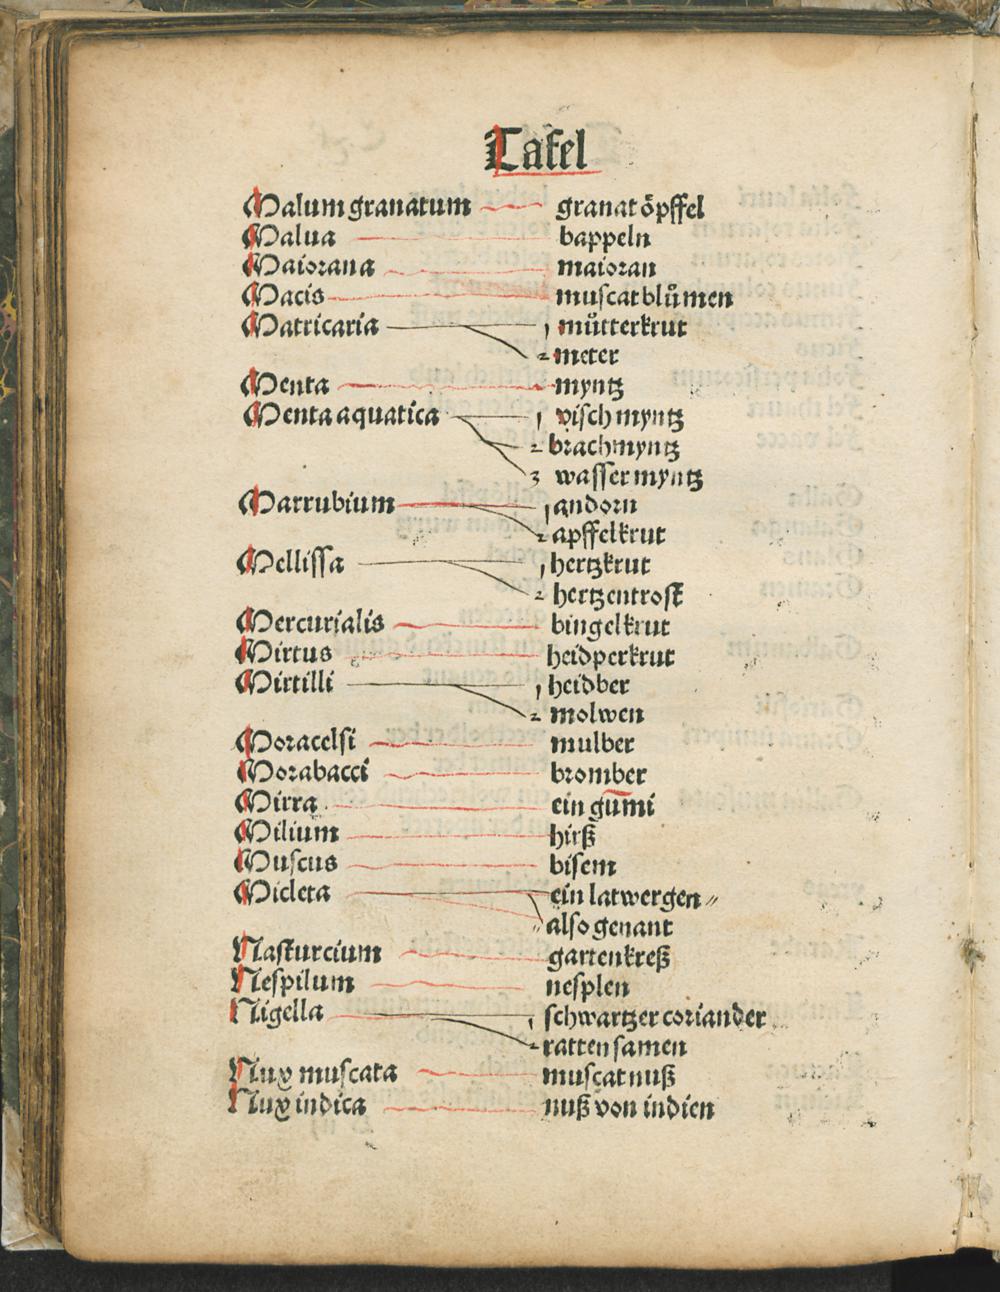 Tafel
Malum granatum granat öpffel
Malua bappeln
Maiorana maioran
Macis muscatblůmen
Matricaria 1 můtterkrut
2 meter
Menta myntz
Menta aquatica 1 visch myntz
2 brachmyntz
3 wasser myntz
Marrubium 1 andorn
2 apffelkrut
Mellissa 1 hertzkrut
2 hertzentrost
Mercurialis bingelkrut
Mirtus heidperkrut
Mirtilli 1 heidber
2 molwen
Moracelsi mulber
Morabacci bromber
Mirra ein gūmi
Milium hirß
Muscus bisem
Micleta ein latwergen⸗
also genant
Nasturcium gartenkreß
Nespilum nesplen
Nigella 1 schwartzer coriander
2 ratten samen
Nux muscata muscatnuß
Nux indica nuß von indien